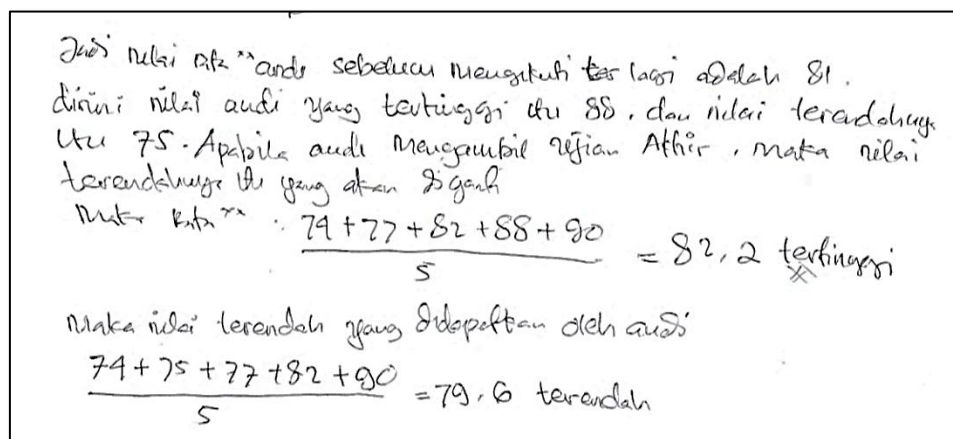 Jadi nilai rata "andi sebelum mengikuti tes lagi adalah 81.
disini nilai andi yang tertinggi itu 88, dan nilai terendahnya
itu 75. Apabila andi mengambil ujian Akhir, maka nilai
terendahnya itu yang akan diganti
Maka Rata "
74 + 77 + 82 + 88 + 90
5
= 82,2 tertinggi
Maka nilai terendah yang didapatkan oleh andi
74 + 75 + 77 + 82 + 90
5
= 79,6 terendah